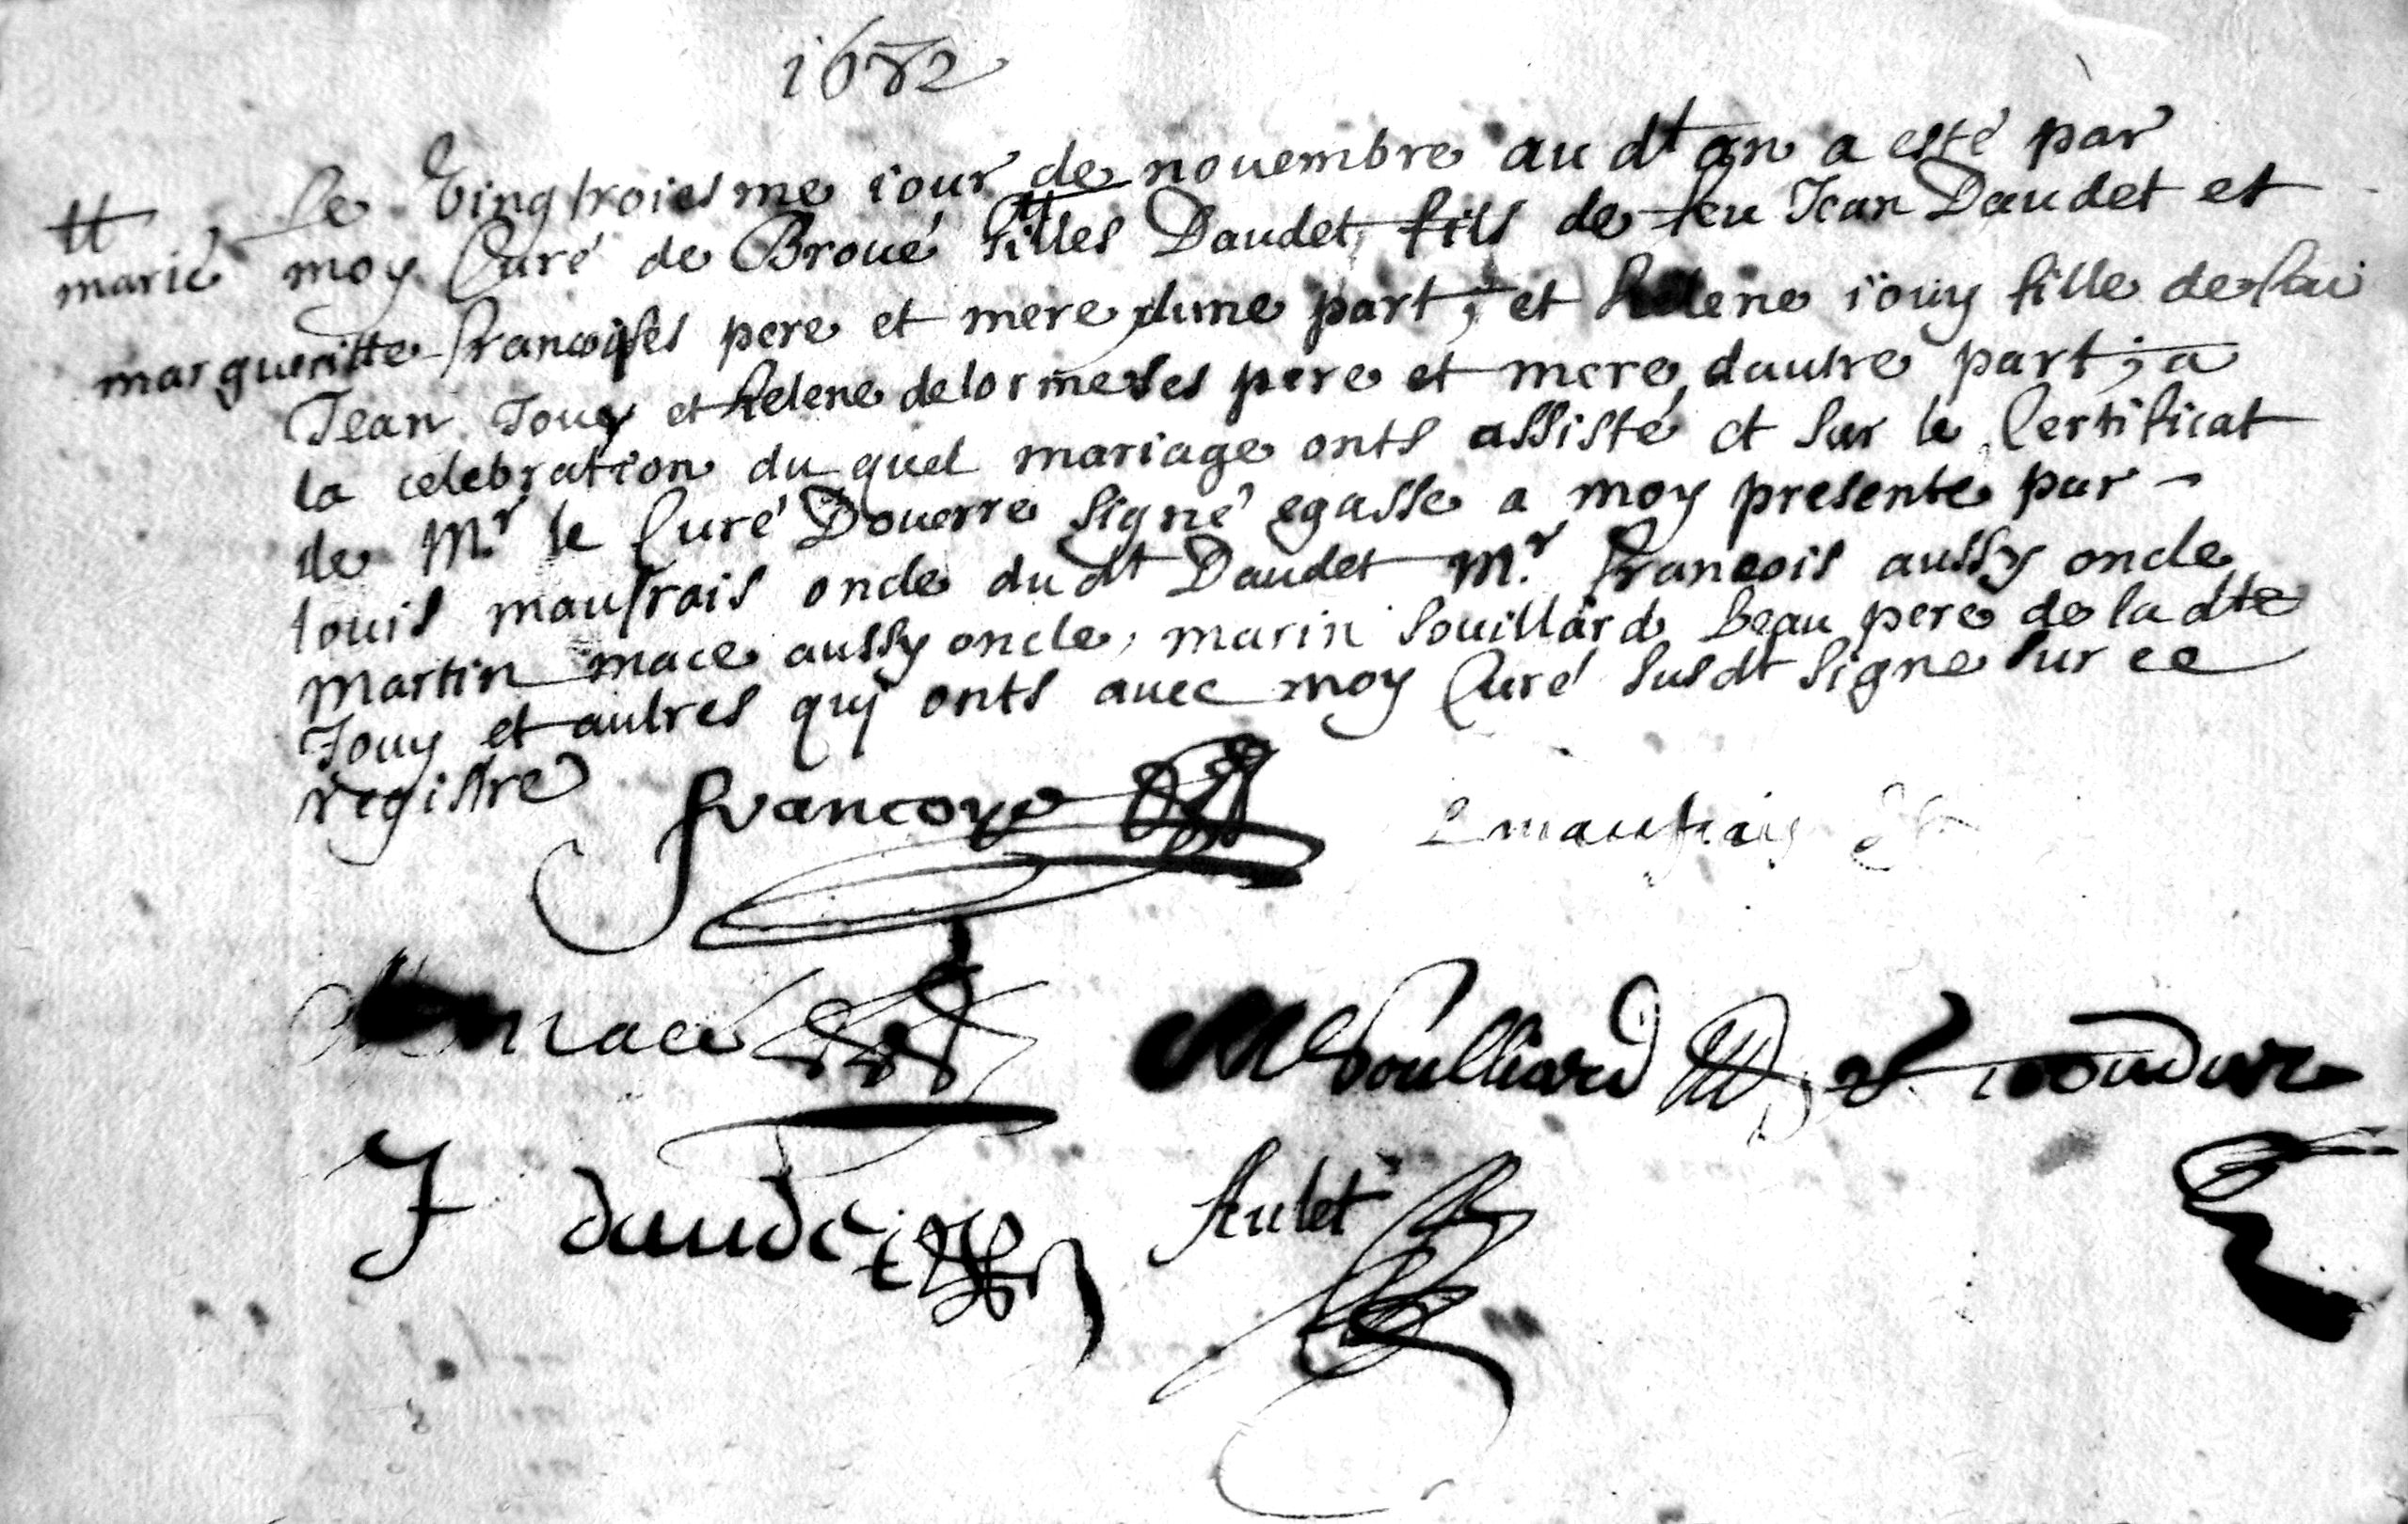 1682
Le Vingtroiesme iour de nouembre au dt an a esté par
marié moy Curé de Broué Gilles Daudet fils de feu Jean Daudet et
margueritte francoise ses pere et mere dune part, et helene iouy fille de feu
Jean Jouy et helene delorme ses pere et mere dautre part, a
la celebration du quel mariage onts assisté et sur le Certificat
de Mr le Curé Douerre signé egasse a moy presente par
louis maufrais oncle du dt Daudet Mr francois aussy oncle
Martin mace aussy oncle, marin Souillard beau pere de la dte
Jouy et autres qui onts auec moy Curé susdt signe sur ce
registre
francoys L maufrais
mace M Soulliard
J daudet